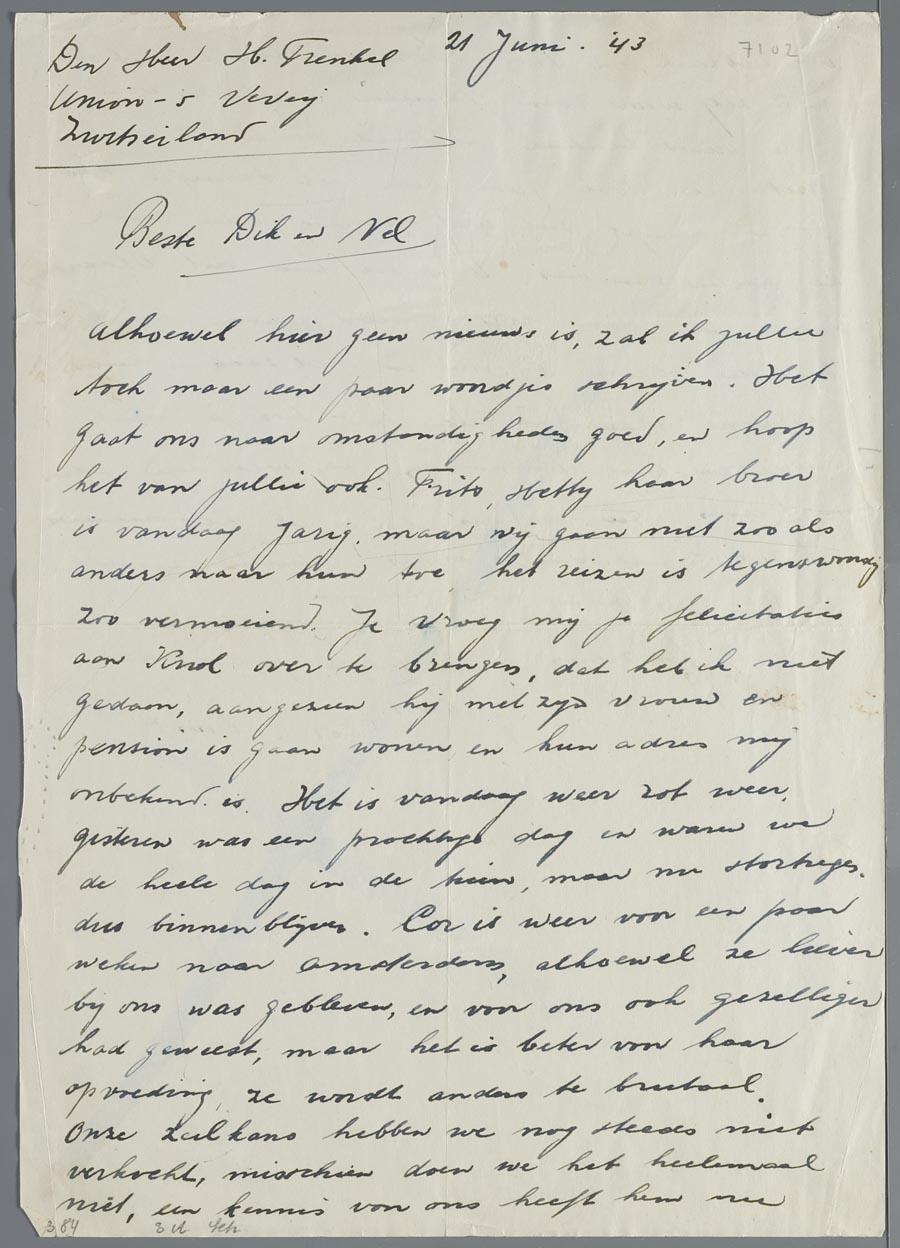 21 Juni. '43
7102
Den Heer H. Frenkel
Union-s Vevey
Zwitseiland
Beste Dik en Nel
Alhoewel hier geen nieuws is, zal ik jullie
toch maar een paar woordjes schrijven. Het
gaat ons naar omstandigheden goed, en hoop
het van jullie ook. Frits, Hetty haar broer
is vandaag jarig, maar wij gaan niet zooals
anders naar hun toe, het reizen is tegenswoordig
zoo vermoeiend. Je vroeg mij je felicitaties
aan Knol over te brengen, dat heb ik niet
gedaan, aangezien hij met zijn vrouw en
pension is gaan wonen en hun adres mij
onbekend is. Het is vandaag weer rot weer,
gisteren was een prachtige dag en waren we
de heele dag in de tuin, maar nu stortregen.
dus binnen blijven. Cor is weer voor een paar
weken naar Amsterdam, alhoewel ze liever
bij ons was gebleven, en voor ons ook gezelliger
had geweest, maar het is beter voor haar
opvoeding, ze wordt anders te brutaal.
Onze zeilkano hebben we nog steeds niet
verkocht, misschien doen we het heelemaal
niet, een kennis van ons heeft hem nu
3,84